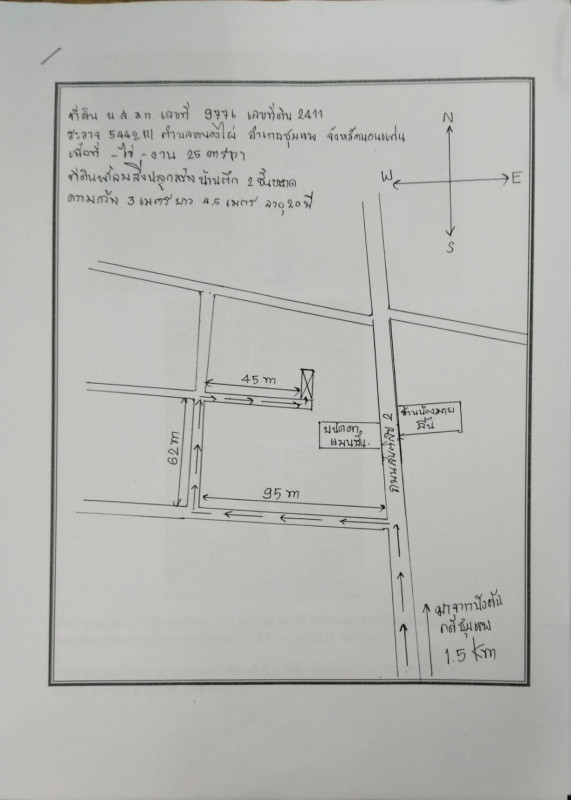 ที่ดิน น.ส.3ก. เลขที่ 9776 เลขที่ดิน 2411
ระวาง 5442 III ตำบลหนองไผ่ อำเภอชุมแพ จังหวัดขอนแก่น
เนื้อที่ - ไร่ - งาน 25 ตารางวา
ที่ดินพร้อมสิ่งปลูกสร้าง บ้านตึก 2 ชั้นขนาด
ความกว้าง 3 เมตร ยาว 4.5 เมตร อายุ 20 ปี
N
W E
S
45 m
62 m
95 m
แมนชั่น
ร้านน้องมาย
ถนน 2
มาจาก
1.5 Km